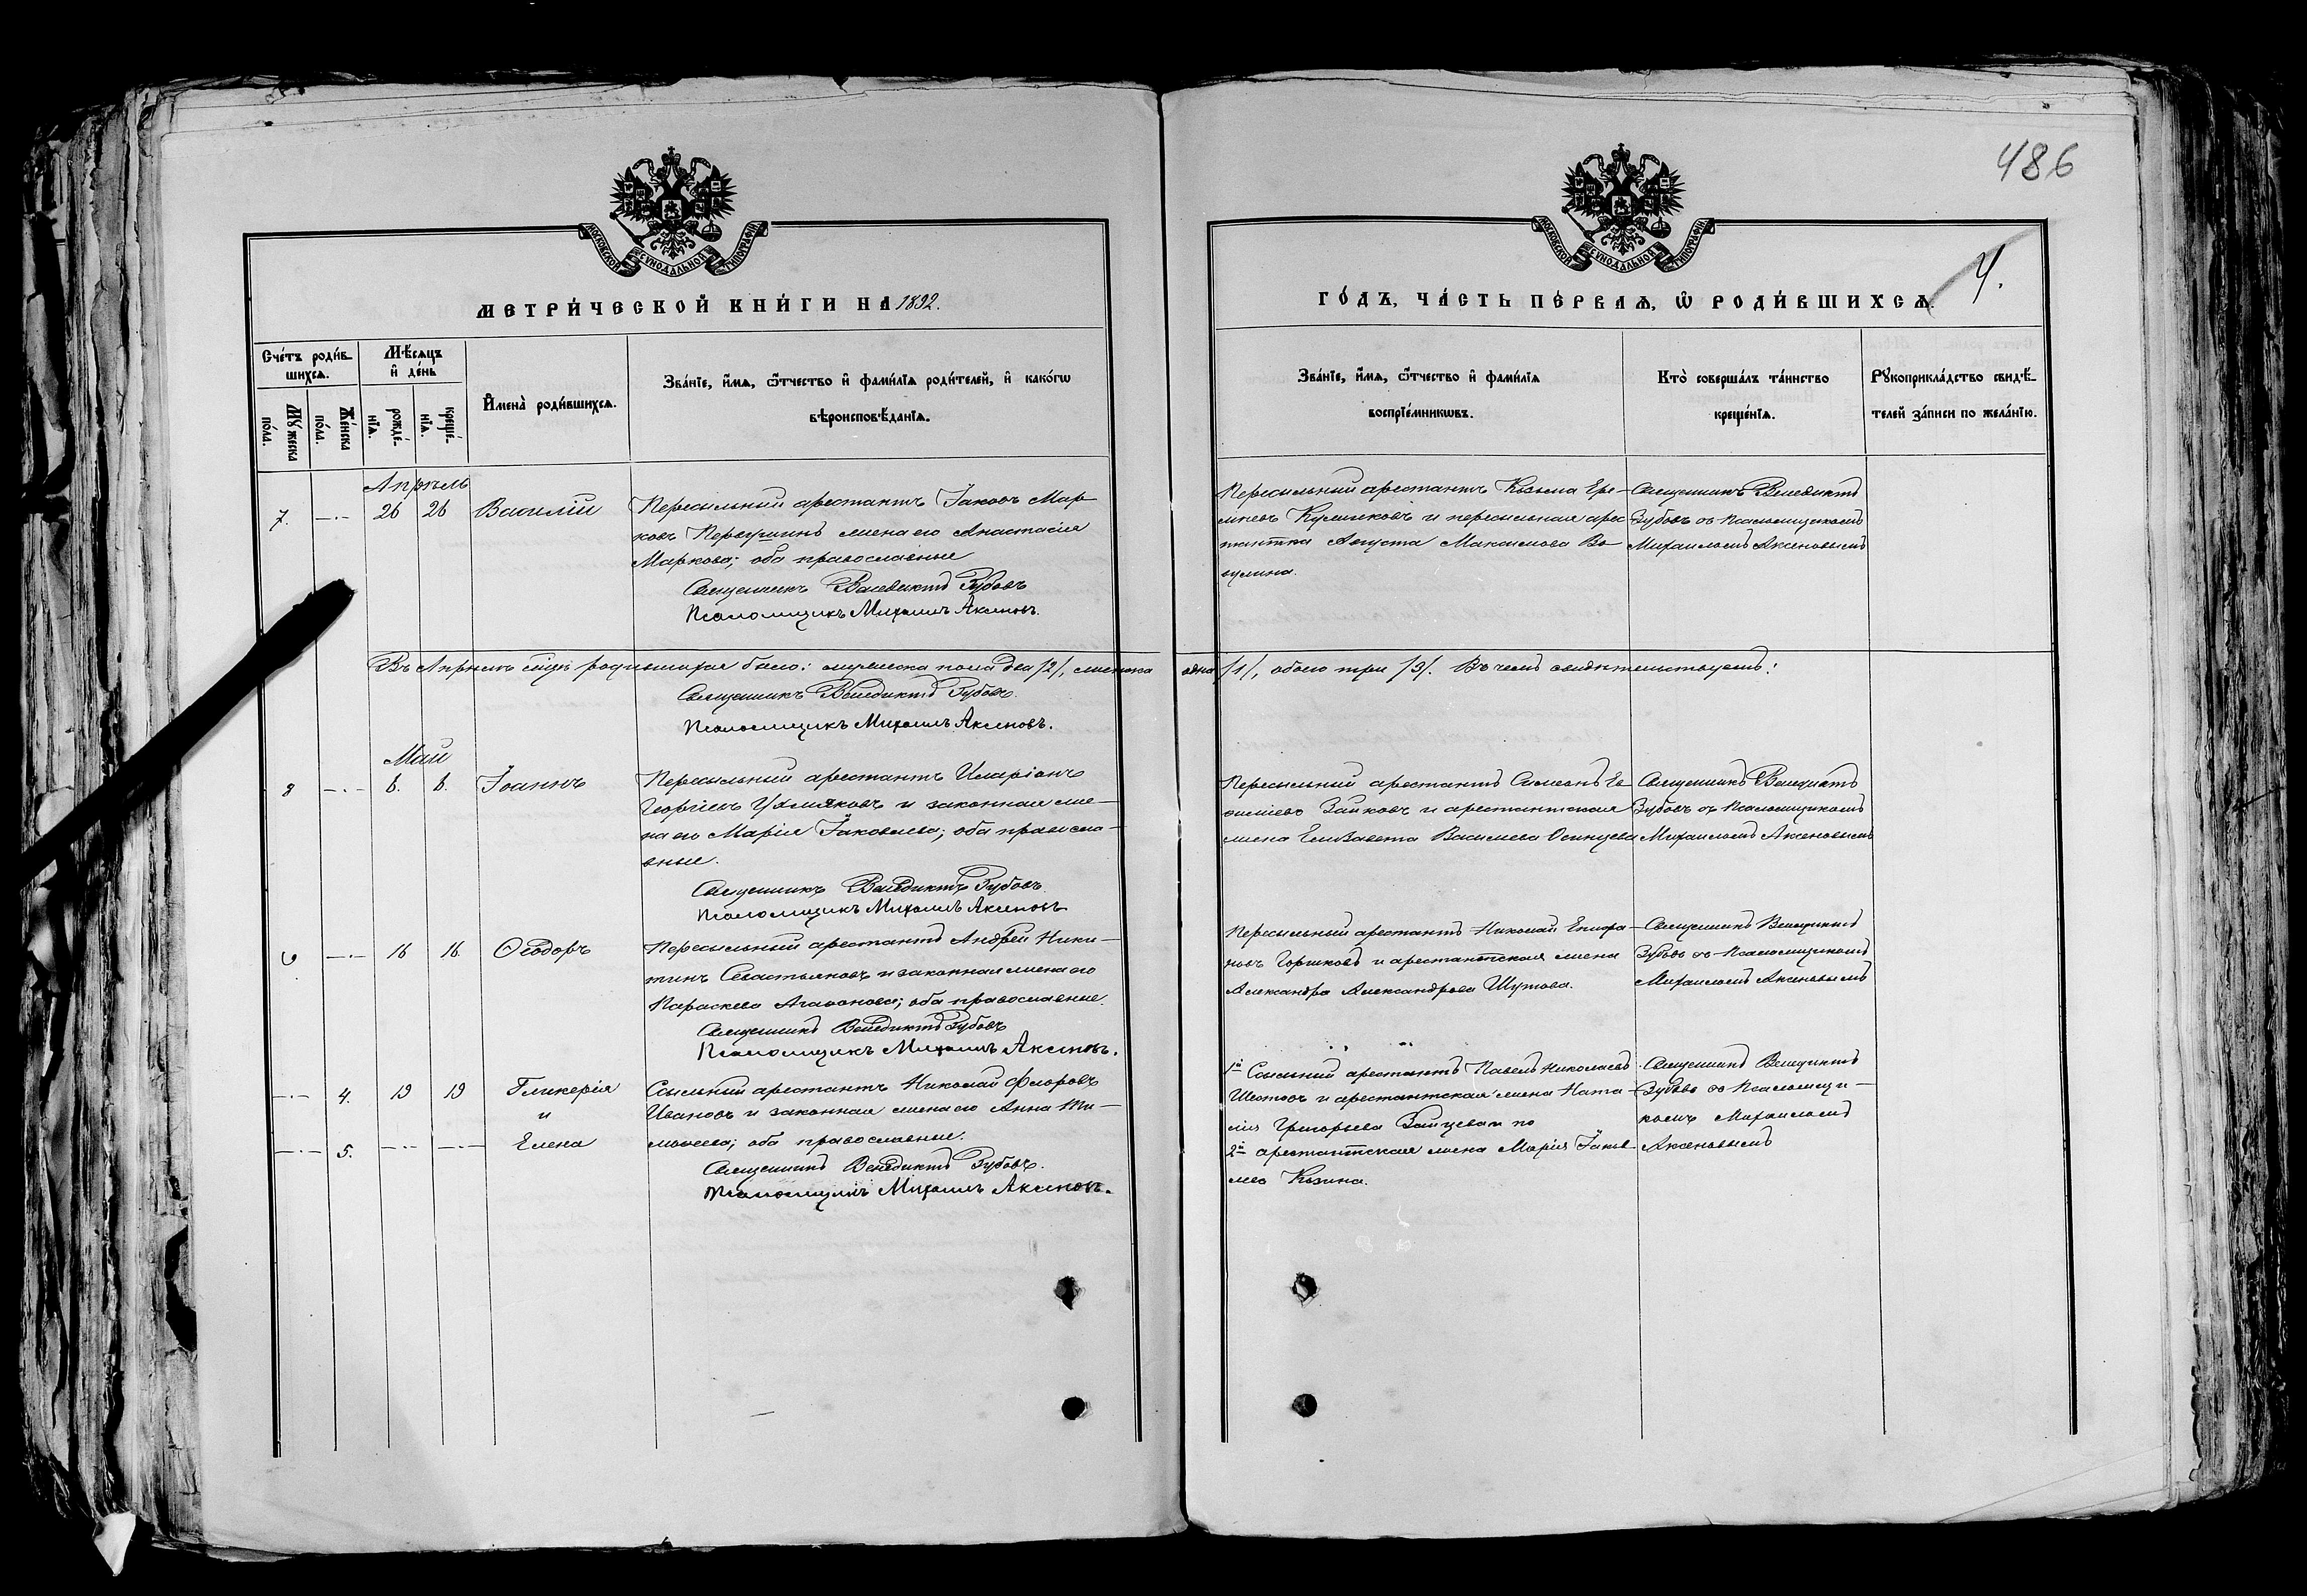 486
МОСКОВСКОЙ СѴНОДАЛЬНОЙ ТИПОГРАФІИ
МОСКОВСКОЙ СѴНОДАЛЬНОЙ ТИПОГРАФІИ
4.
МЕТРИ́ЧЕСКОЙ КНИ́ГИ НА 1892.
ГО́ДЪ, ЧА́СТЬ ПЕ́РВАѦ, Ѡ҆ РОДИ́ВШИХСѦ.
Сче́тъ роди́в-
шихсѧ.
Мꙋжеска по́ла.
Же́нска по́ла.
Мѣ́сѧцъ
и҆ де́нь
рожде́-
нїѧ.
креще́-
нїѧ.
И҆мена̀ роди́вшихсѧ.
Зва́нїе, и҆́мѧ, ѻ҆́тчество и҆ фами́лїѧ роди́телей, и҆ како́гѡ
вѣроисповѣ́данїѧ.
Зва́нїе, и҆́мѧ, ѻ҆́тчество и҆ фами́лїѧ
воспрїе́мникѡвъ.
Кто̀ соверша́лъ та́инство
креще́нїѧ.
Рꙋкоприкла́дство свидѣ́-
телей за́писи по жела́нїю.
Апрѣль
7. —·— 26 26 Василій
Пересыльный арестантъ Іаковъ Мар-
ковъ Первушинъ жена его Анастасія
Маркова; оба православные
Священникъ Венедиктъ Зубовъ
Псаломщикъ Михаилъ Аксеновъ.
Пересыльный арестантъ Козьма Ере-
мѣевъ Куликовъ и пересыльная арес
тантка Августа Максимова Во
Священникъ Венедиктъ
Зубовъ съ Псаломщикомъ
Михаиломъ Аксеновымъ
Въ Апрѣлѣ мцѣ родившихся было: мужеска пола два /2/, женска одна /1/, обоего три /3/. Въ чемъ свидѣтельствуемъ:
Священникъ Венедиктъ Зубовъ.
Псаломщикъ Михаилъ Аксеновъ.
Май
8 —·— 6. 6. Іоаннъ
Пересыльный арестантъ Иларіонъ
Георгіевъ и законная же-
на его Марія Іаковлева; оба правосла-
вные.
Священникъ Венедиктъ Зубовъ.
Псаломщикъ Михаилъ Аксеновъ
Пересыльный арестантъ Симеонъ Ев
Зайковъ и арестантская
жена Елизавета Васильева Осинцева
Священникъ Венедиктъ
Зубовъ съ Псаломщикомъ
Михаиломъ Аксеновымъ
9 —·— 16 16. Ѳеодоръ
Пересыльный арестантъ Андрей Ники-
тинъ Севастьяновъ и законная жена его
Параскева Агафонова; оба православные.
Священникъ Венедиктъ Зубовъ
Псаломщикъ Михаилъ Аксеновъ.
Пересыльный арестантъ Николай
Горшковъ и арестантская жена
Александра Александрова Шутова.
Священникъ Венедиктъ
Зубовъ съ Псаломщикомъ
Михаиломъ Аксеновымъ
—·— 4. 19 19 Гликерія
и
—·— 5. —·— —·— Елена
Ссыльный арестантъ Николай Флоровъ
Ивановъ и законная жена его Анна Ти-
моѳеева; оба православные.
Священникъ Венедиктъ Зубовъ.
Псаломщикъ Михаилъ Аксеновъ.
1й Ссыльный арестантъ Павелъ Николаевъ
Шестовъ и арестантская жена Ната-
лія Григорьева Зайцева и по
2й арестантская жена Марія Іаков-
лева Козина.
Священникъ Венедиктъ
Зубовъ съ Псаломщи-
комъ Михаиломъ
Аксеновымъ